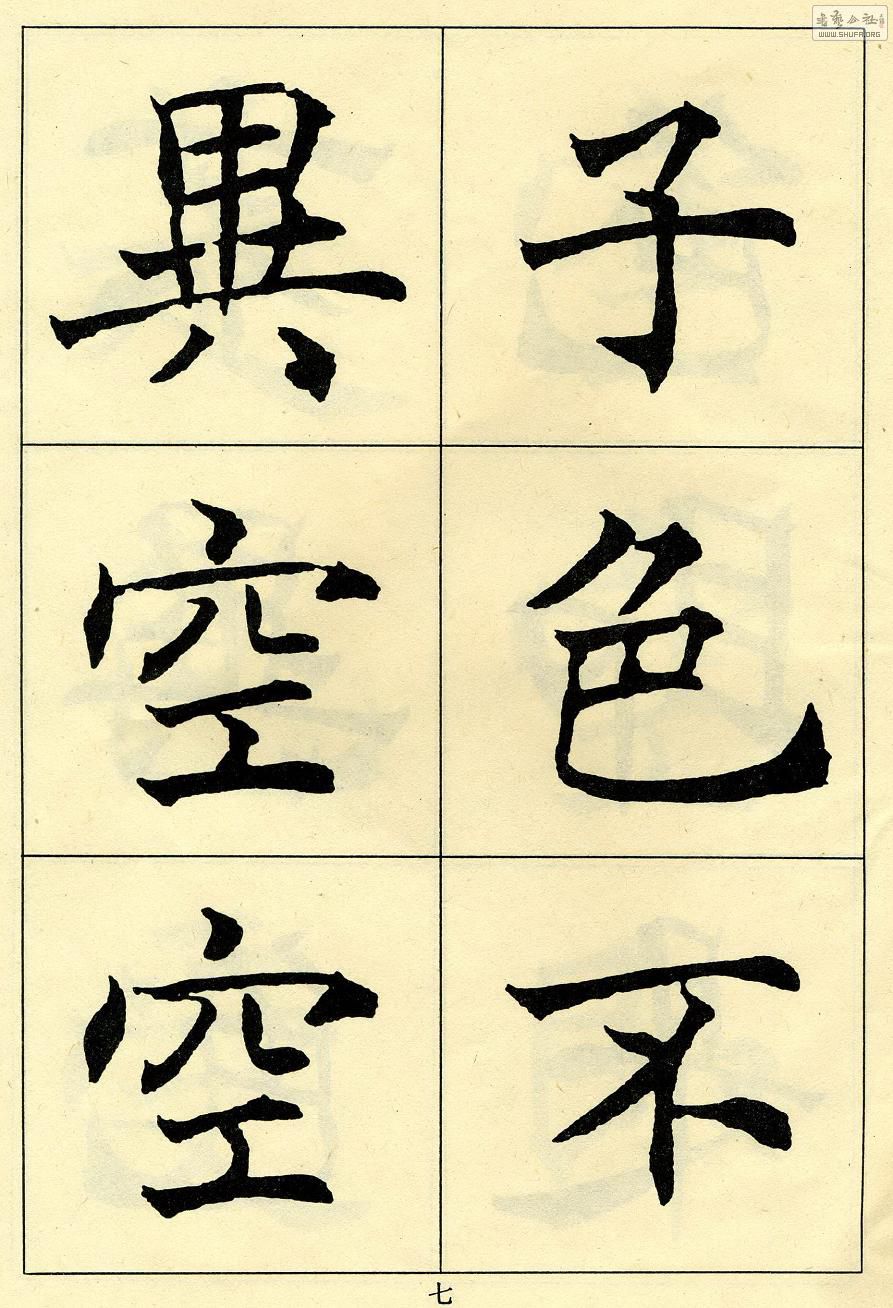 子色不
異空空
七
WWW.SHUFA.ORG